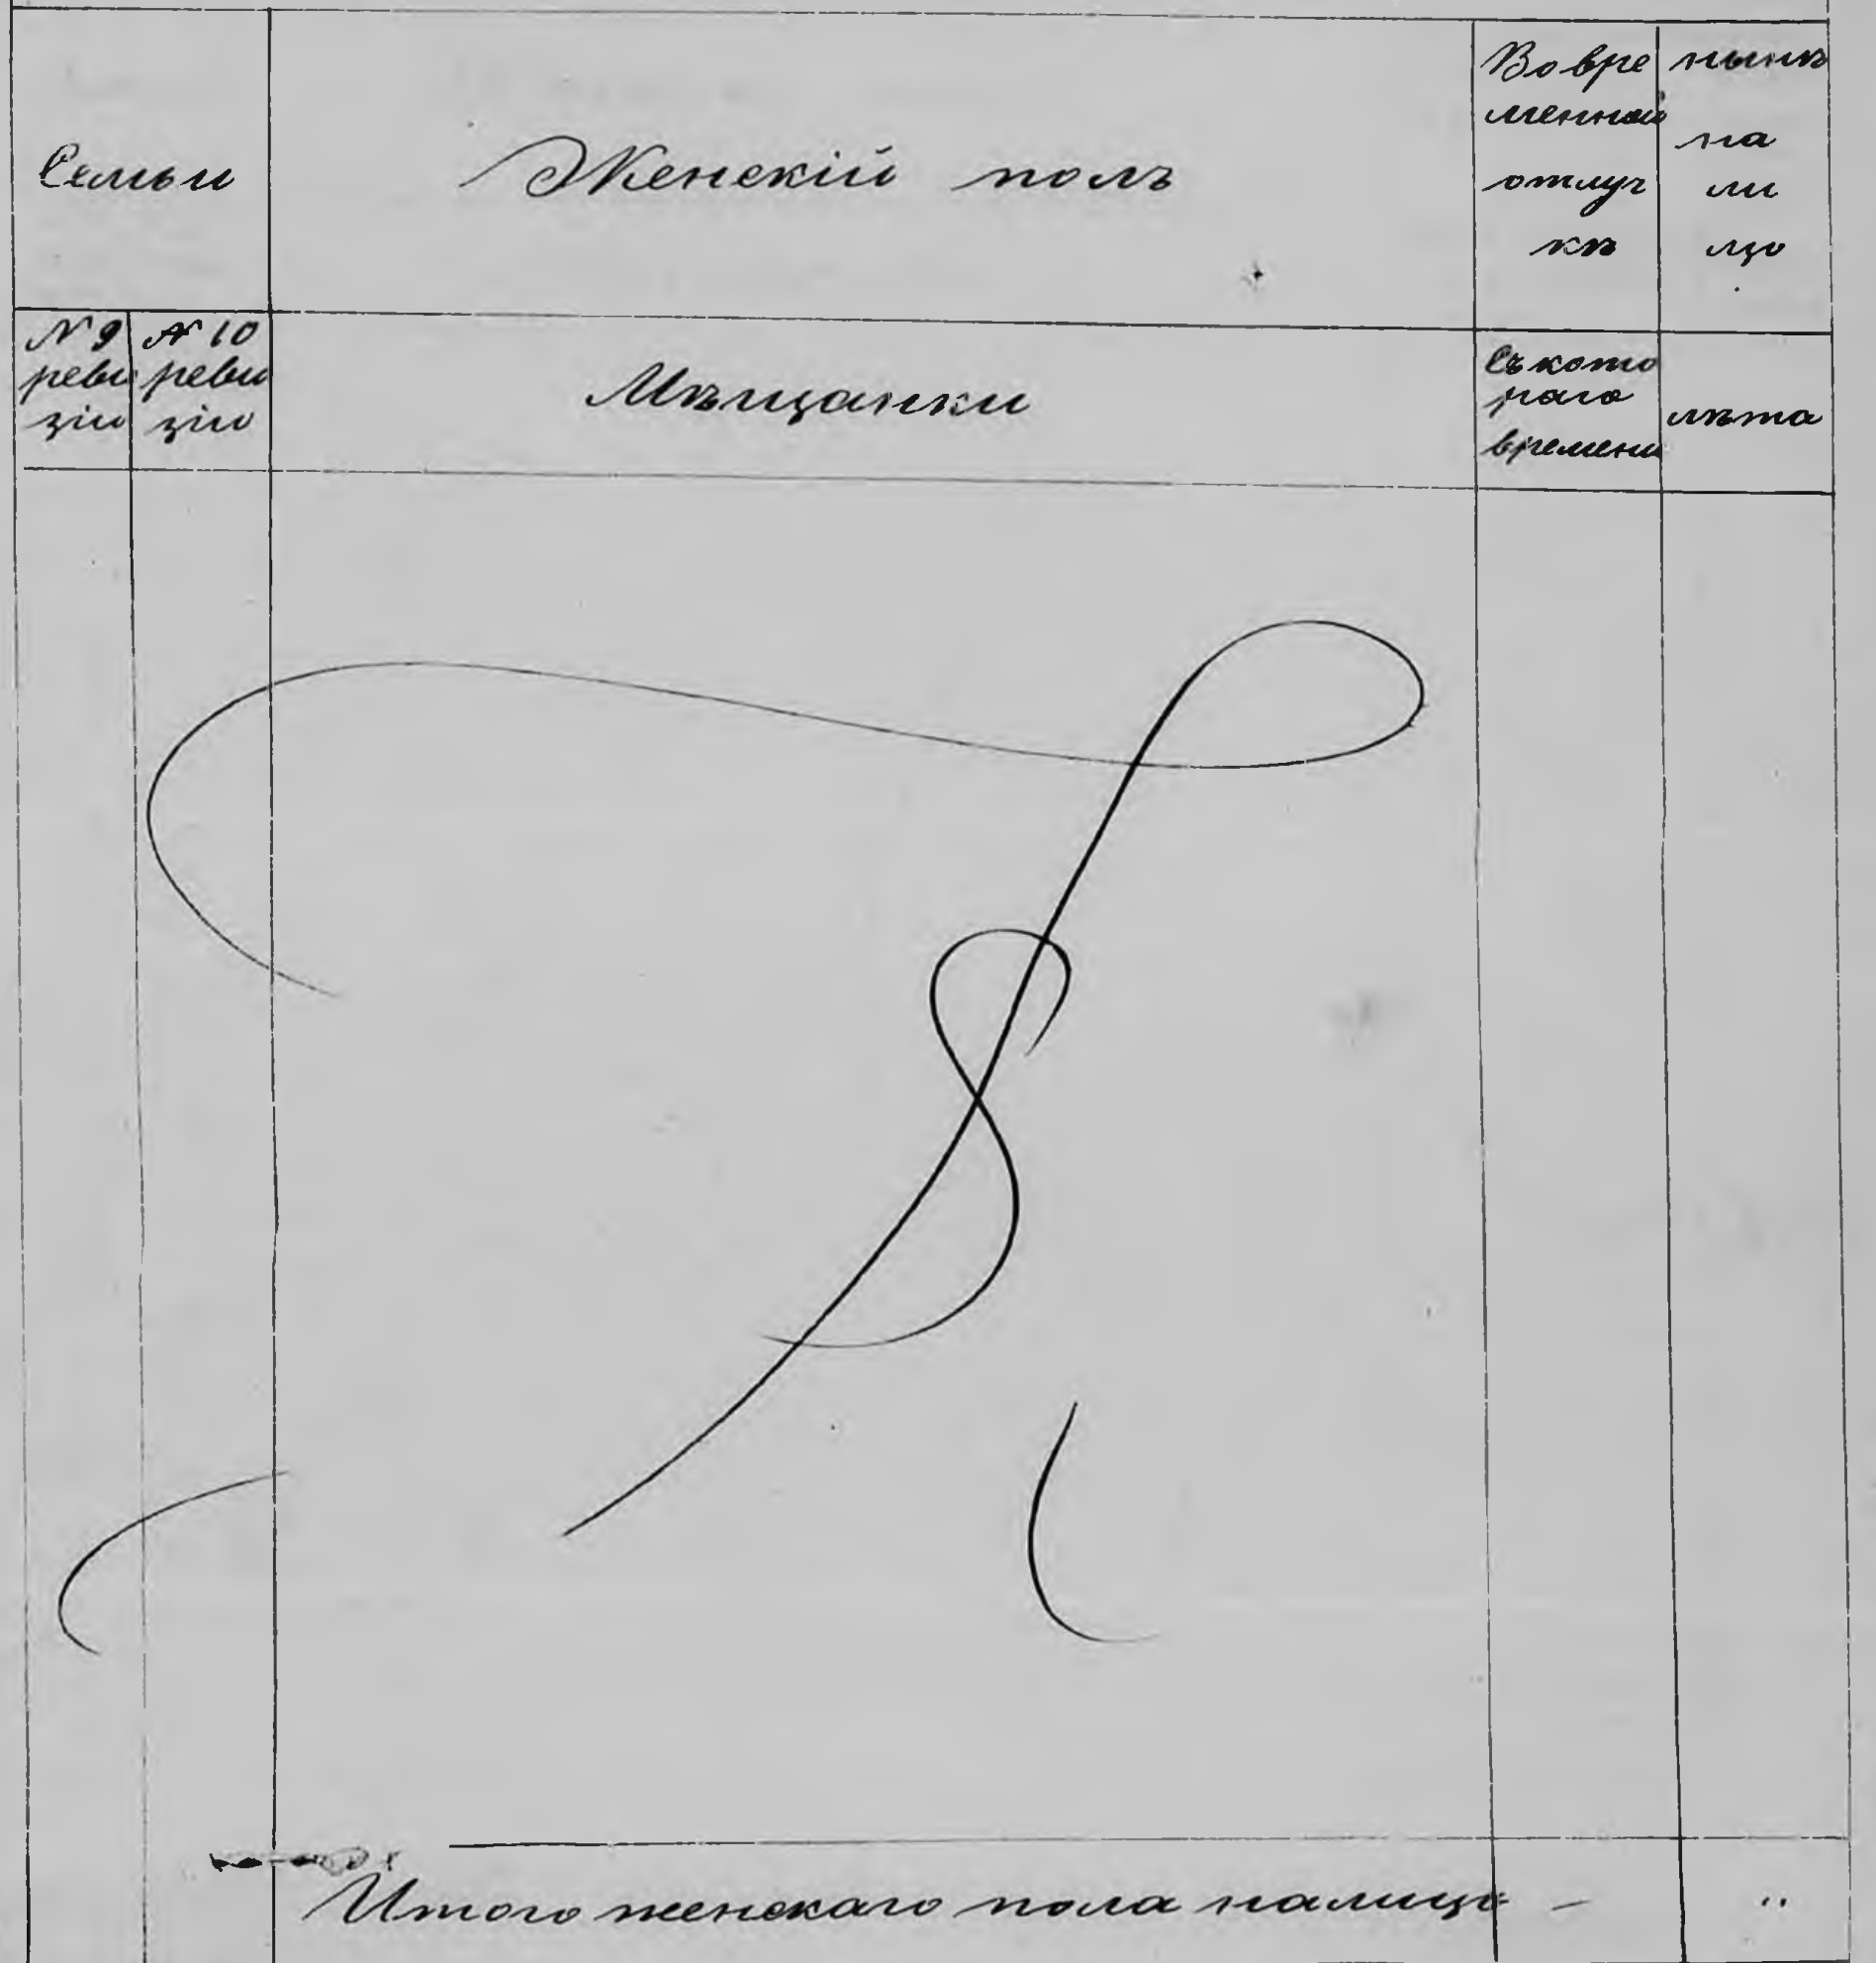 Семьи
Женскій полъ
Во вре
менной
отлуч
кѣ
нынѣ
на
ли
цо
№ 9
реви
зіи
№ 10
реви
зіи
Мѣщанки
Съ кото
раго
времени
лѣта
Итого женскаго пола налицо - "